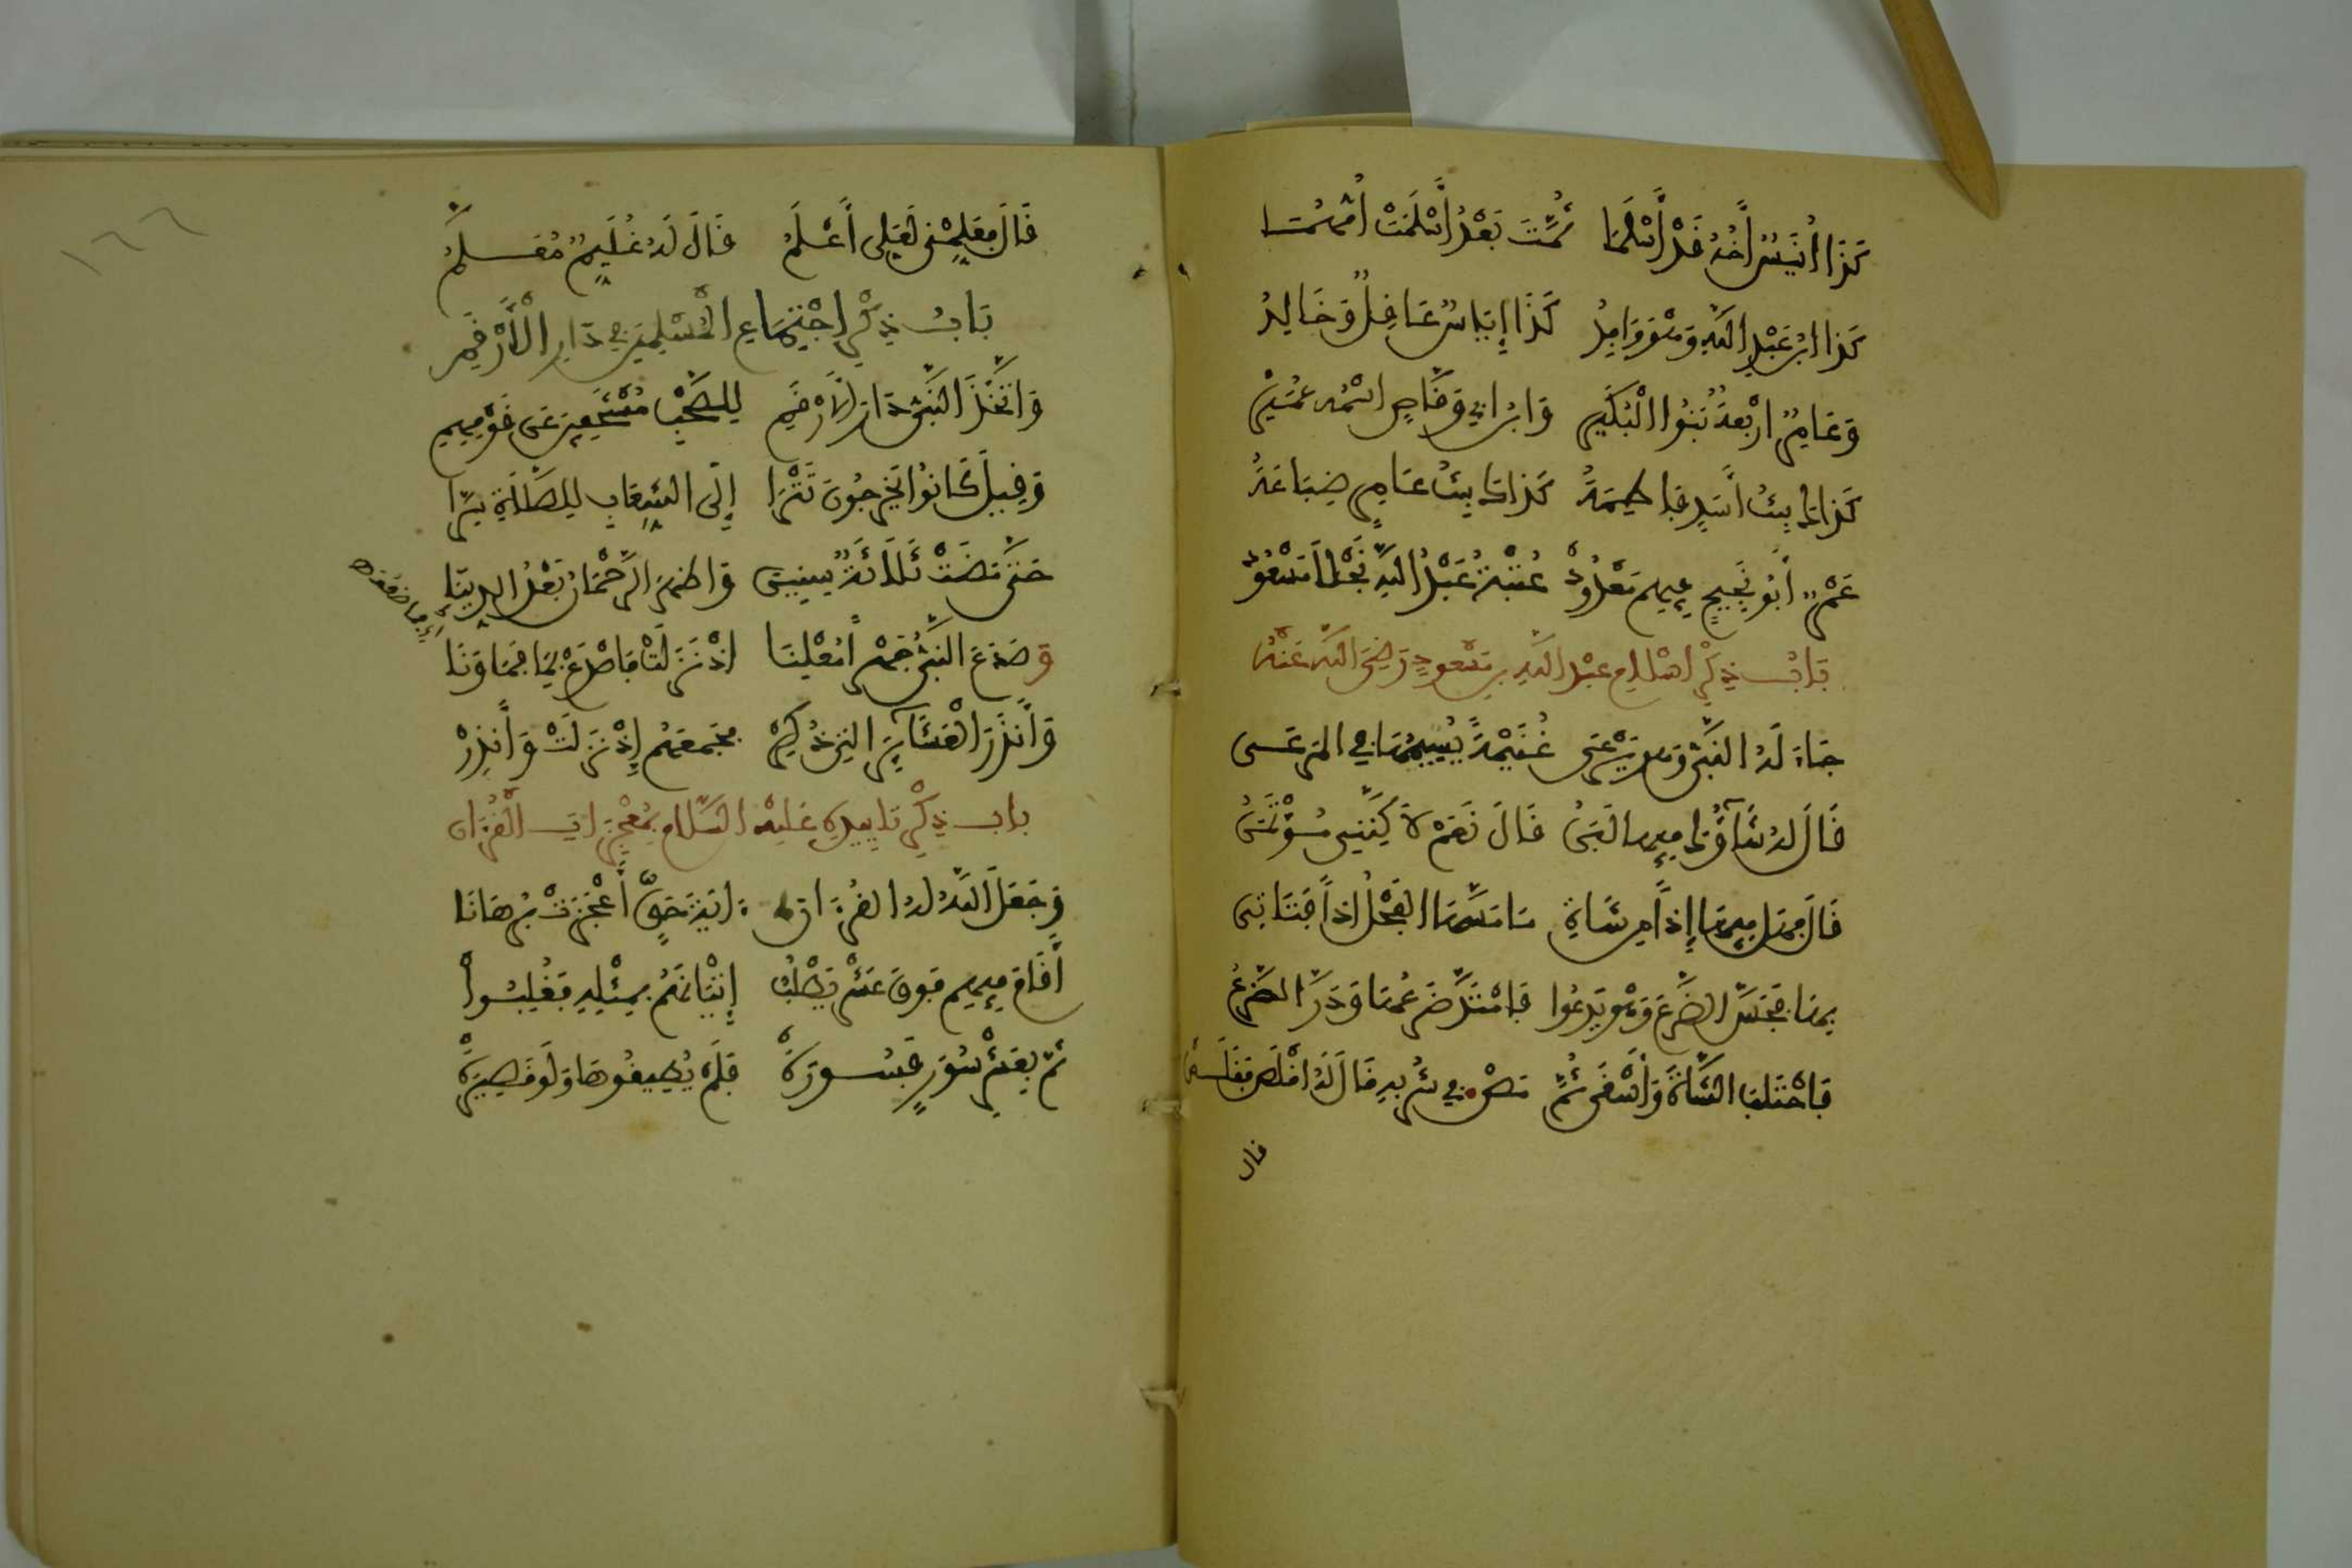 كَذَا أُنَيْسٌ أَخُهُ قَدْ أَسْلَمَا ثُمَّتَ بَعْدُ أَسْلَمَتْ أُمُّهُمَا
كَذَا ابْنُ عَبْدِ اللَّهِ وَهْوَ وَاقِدُ كَذَا إِيَاسٌ عَاقِلٌ وَخَالِدُ
وَعَامِرٌ ارْبَعَةٌ بَنُوا الْبُكَيْرِ وَابْنُ ابِي وَقَّاصٍ اسْمُهُ عُمَيْرْ
كَذَاكَ بِنْتُ أَسَدٍ فَاطِمَةُ كَذَاكَ بِنْتُ عَامِرٍ ضُبَاعَةُ
عَمْرٌ أَبُو نَجِيحٍ فِيهِمْ مَعْدُودْ عُتْبَةُ عَبْدُ اللَّهِ نَجْلَا مَسْعُودْ
بَابُ ذِكْرِ اسْلَامِ عَبْدِ اللَّهِ بْنِ مَسْعُودٍ رَضِيَ اللَّهُ عَنْهُ
جَاءَ لَهُ النَّبِيُّ وَهْوَ يَرْعَى غُنَيْمَةً يُسِيمُهَا فِي المَرْعَى
قَالَ لَهُ شَاؤُكَ فِيهَا لَبَنُ قَالَ نَعَمْ لَاكِنَّنِي مُؤْتَمَنُ
قَالَ فَهَلْ فِيهَا إِذاً مِنْ شَاةِ مَا مَسَّهَا الفَحْلُ اذاً فَتَاتِي
بِهَا فَمَسَّ الضَّرْعَ وَهْوَ يَدْعُوا فَامْتَدَّ ضَرْعُهَا وَدَرَّ الضَّرْعُ
فَاحْتَلَبَ الشَّاةَ وَأَسْقَى ثُمَّ مَصّْ فِي شُرْبِهِ قَالَ لَهُ اقْلُصْ فَقَلَصْ
قال
قَالَ فَعَلِّمْنِي لَعَلِّي أَعْلَمُ قَالَ لَهُ غُلَيِّمٌ مُعَلَّمُ
بَابُ ذِكْرِ اجْتِمَاعِ الْمُسْلِمِينَ فِي دَارِ الْأَرْقَمِ
وَاتَّخَذَ النَّبِيُّ دَارَ الأَرْقَمِ لِلصَّحْبِ مُسْتَخْفِينَ عَنْ قَوْمِهِمِ
وَقِيلَ كَانُوا يَخْرُجُونَ تَتْرَا إِلَى الشِّعَابِ لِلصَّلَاةِ سِرَّا
حَتَّى مَضَتْ ثَلَاثَةٌ سِنِينَ وَاظْهَرَ الرَّحْمَانُ بَعْدُ الدِّينَا
وَصَدَعَ النَّبِيُّ جَهْراً مُعْلِنَا اذْ نَزَلَتْ فَاصْدَعْ بِمَا فَمَا وَنَا
أي ما ضعف
وَأَنْذَرَ الْعَشَائِرَ الَّتِي ذُكِرْ بِجَمْعِهِمْ إِذْ نَزَلَتْ وَأَنْذِرْ
باب ذِكْرِ تَأْيِيدِهِ عَلَيْهِ السَّلَام بِمُعْجِزَاتِ الْقُرْءَانِ
وَجَعَلَ اللَّهُ لَهُ القُرْءَانَ ءَايَةَ حَقٍّ أَعْجَزَتْ بُرْهَانَا
أَقَامَ فِيهِمْ فَوْقَ عَشْرٍ يَطْلُبُ إِتْيَانَهُمْ بِمِثْلِهِ فَغُلِبُوا
ثُمَّ بِعَشْرِ سُوَرٍ فَسُورَةْ فَلَمْ يُطِيقُوهَا وَلَوْ قَصِيرَةْ
١٦٦